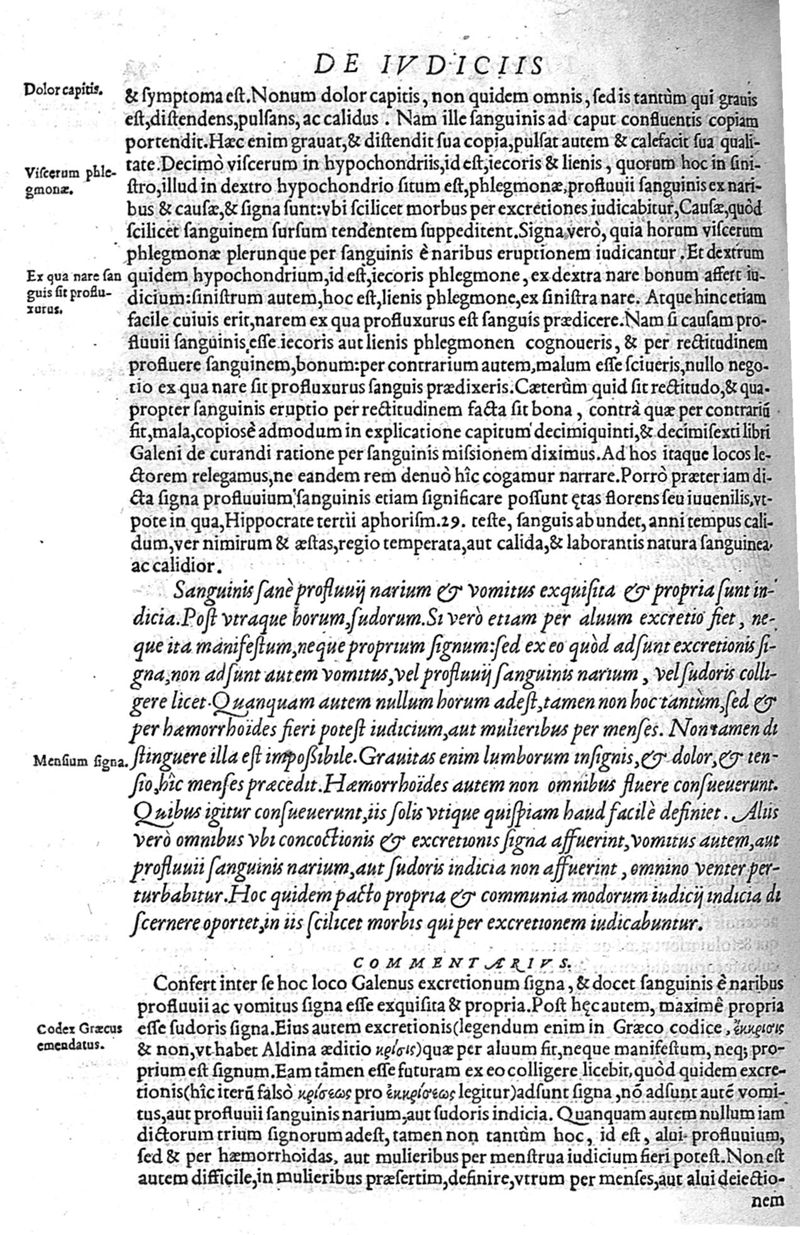 DE IVDICIIS
Dolor capitis.
& ſymptoma eſt.Nonum dolor capitis, non quidem omnis, ſed is tantùm qui grauis
eſt,diſtendens,pulſans, ac calidus . Nam ille ſanguinis ad caput confluentis copiam
portendit.Hæc enim grauat,& diſtendit ſua copia,pulſat autem & calefacit ſua quali-
tate.Decimò viſcerum in hypochondriis,id eſt,iecoris & lienis , quorum hoc in ſini-
Viſcerum phle-
gmonæ.
ſtro,illud in dextro hypochondrio ſitum eſt,phlegmonæ,profluuii ſanguinis ex nari-
bus & cauſæ,& ſigna ſunt:vbi ſcilicet morbus per excretiones iudicabitur,Cauſæ,quòd
ſcilicet ſanguinem ſurſum tendentem ſuppeditent.Signa verò, quia horum viſcerum
phlegmonæ plerunque per ſanguinis è naribus eruptionem iudicantur . Et dextrum
Ex qua nare ſan
guis ſit proflu-
xurus.
quidem hypochondrium,id eſt,iecoris phlegmone, ex dextra nare bonum affert iu-
dicium:ſiniſtrum autem,hoc eſt,lienis phlegmone,ex ſiniſtra nare. Atque hinc etiam
facile cuiuis erit,narem ex qua profluxurus eſt ſanguis prædicere.Nam ſi cauſam pro-
fluuii ſanguinis,eſſe iecoris aut lienis phlegmonen cognoueris, & per rectitudinem
profluere ſanguinem,bonum:per contrarium autem,malum eſſe ſciueris,nullo nego-
tio ex qua nare ſit profluxurus ſanguis prædixeris.Cæterùm quid ſit rectitudo,& qua-
propter ſanguinis eruptio per rectitudinem facta ſit bona , contrà quæ per contrariũ
fit,mala,copiosè admodum in explicatione capitum decimiquinti,& decimiſexti libri
Galeni de curandi ratione per ſanguinis miſsionem diximus.Ad hos itaque locos le-
ctorem relegamus,ne eandem rem denuò hîc cogamur narrare.Porrò præter iam di-
cta ſigna profluuium ſanguinis etiam ſignificare poſſunt ętas florens ſeu iuuenilis,vt-
pote in qua,Hippocrate tertii aphoriſm.29. teſte, ſanguis abundet, anni tempus cali-
dum,ver nimirum & æſtas,regio temperata,aut calida,& laborantis natura ſanguinea
ac calidior.
Sanguinis ſanè profluuij narium & vomitus exquiſita & propria ſunt in-
dicia.Poſt vtraque horum,ſudorum.Si verò etiam per aluum excretio fiet, ne-
que ita manifeſtum,neque proprium ſignum:ſed ex eo quòd adſunt excretionis ſi-
gna,non adſunt autem vomitus,vel profluuij ſanguinis narium , vel ſudoris colli-
gere licet.Quanquam autem nullum horum adeſt,tamen non hoc tantùm,ſed &
per hæmorrhoides fieri poteſt iudicium,aut mulieribus per menſes. Non tamen di
Menſium ſigna.
ſtinguere illa eſt impoßibile.Grauitas enim lumborum inſignis,& dolor,& ten-
ſio,hîc menſes præcedit.Hæmorrhoïdes autem non omnibus fluere conſueuerunt.
Quibus igitur conſueuerunt,iis ſolis vtique quiſpiam haud facilè definiet. Aliis
verò omnibus vbi concoctionis & excretionis ſigna affuerint,vomitus autem,aut
profluuii ſanguinis narium,aut ſudoris indicia non affuerint , omnino venter per-
turbabitur.Hoc quidem pacto propria & communia modorum iudicij indicia di
ſcernere oportet,in iis ſcilicet morbis qui per excretionem iudicabuntur.
COMMENTARIVS.
Confert inter ſe hoc loco Galenus excretionum ſigna, & docet ſanguinis è naribus
profluuii ac vomitus ſigna eſſe exquiſita & propria. Poſt hęc autem, maximè propria
Codex Græcus
emendatus.
eſſe ſudoris ſigna.Eius autem excretionis(legendum enim in Græco codice , ἐκκρίσις
& non,vt habet Aldina æditio κρίσις)quæ per aluum fit,neque manifeſtum, neq; pro-
prium eſt ſignum.Eam tamen eſſe futuram ex eo colligere licebit,quòd quidem excre-
tionis(hîc iterũ falsò κρίσεως pro ἐκκρίσεως legitur)adſunt ſigna ,nõ adſunt autẽ vomi-
tus,aut profluuii ſanguinis narium,aut ſudoris indicia. Quanquam autem nullum iam
dictorum trium ſignorum adeſt, tamen non tantùm hoc, id eſt, alui profluuium,
ſed & per hæmorrhoidas, aut mulieribus per menſtrua iudicium fieri poteſt. Non eſt
autem difficile,in mulieribus præſertim,definire,vtrum per menſes,aut alui deiectio-
nem